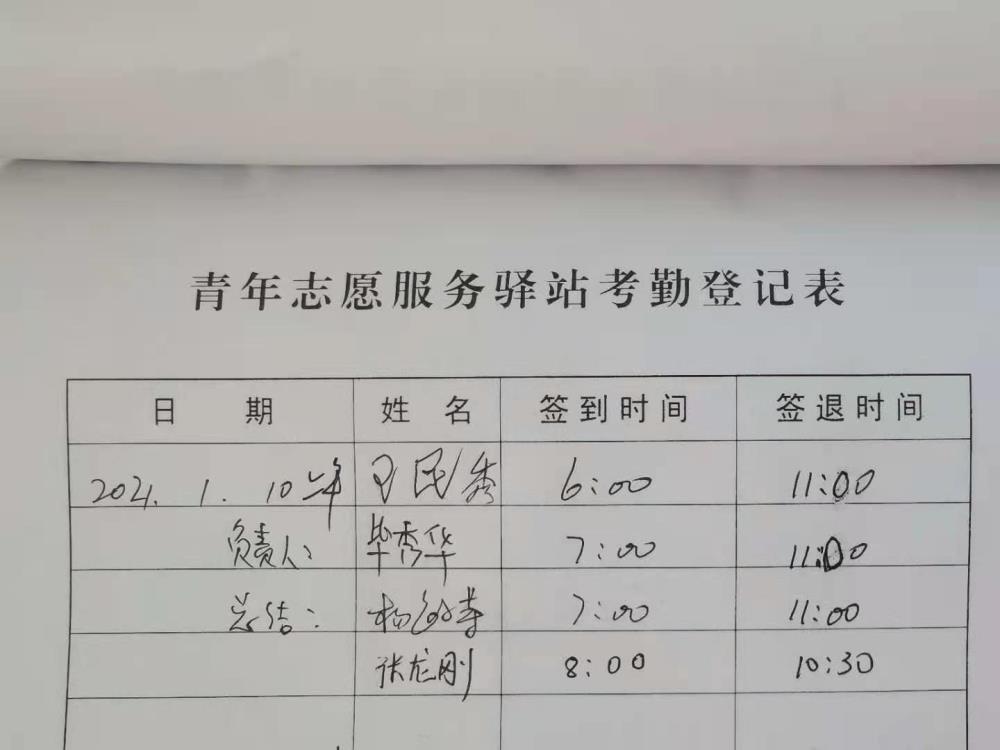 青年志愿服务驿站考勤登记表
日 期 姓 名 签到时间 签退时间
2021. 1. 10 民秀 6:00 11:00
负责人: 毕秀华 7:00 11:00
总结: 杨 7:00 11:00
张龙刚 8:00 10:30